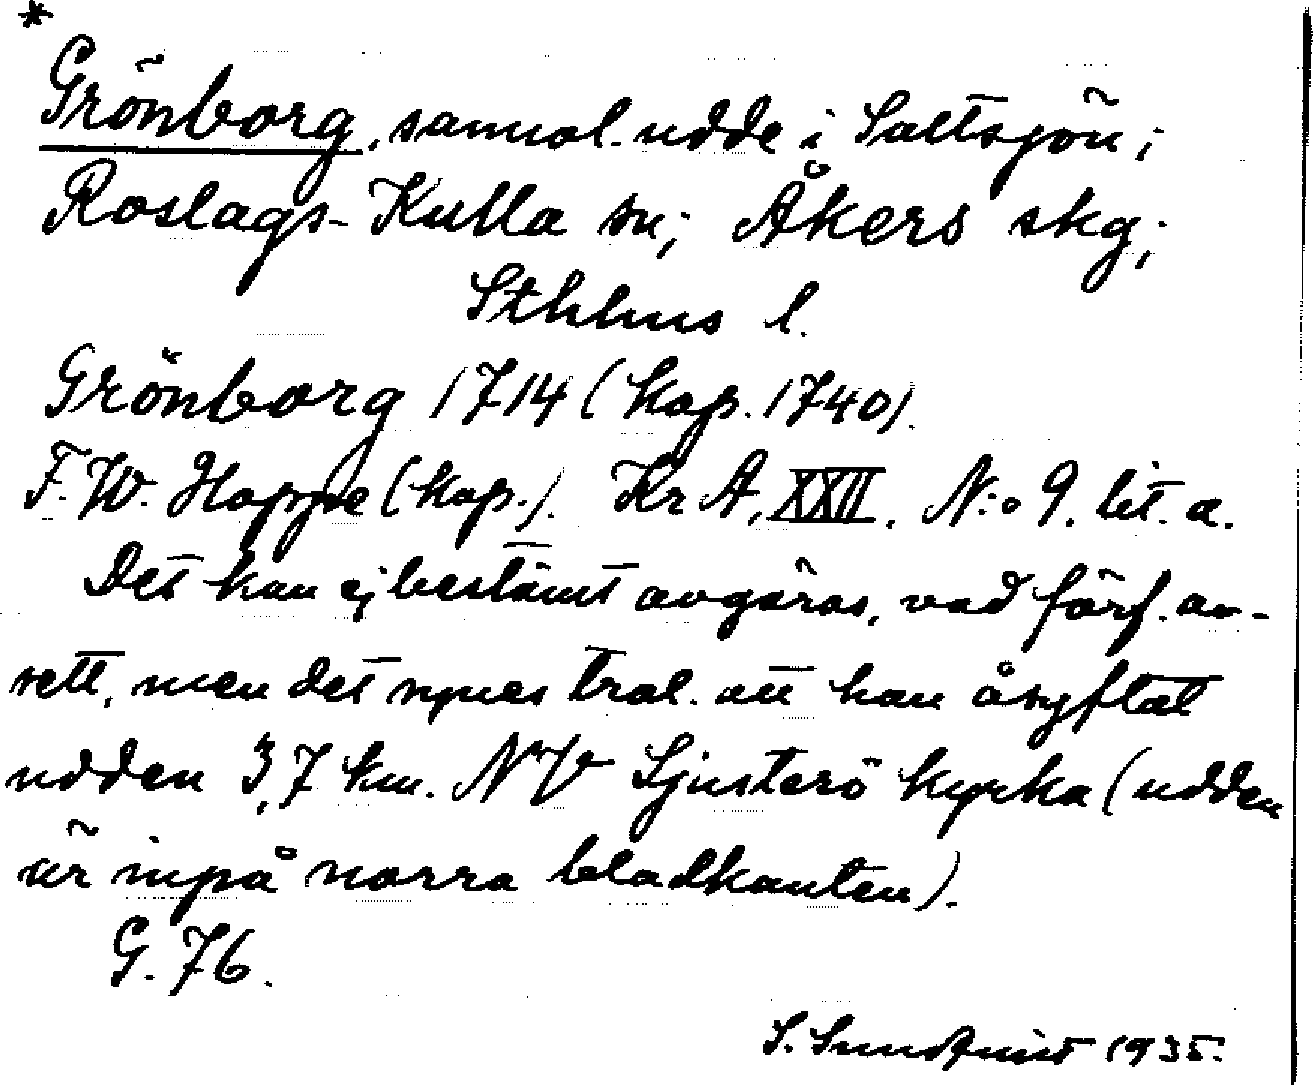 *
Grönborg, sannol. udde i Saltsjön;
Roslags-Kulla sn; Åkers skg;
Sthlms l.
Grönborg 1714 (kop. 1740).
F. W. Hoppe (kop.). Kr A, XXII. N:o 9. lit. a.
Det kan ej bestämt avgöras, vad förf. av-
sett, men det synes trol. att han åsyftat
udden 3,7 km. NV Ljusterö kyrka (udden
är inpå norra bladkanten).
G. 76.
S. Sundqvist 1935.